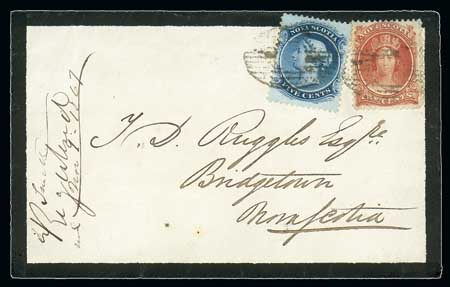 NOVA SCOTIA
FIVE CENTS
NOVA SCOTIA
CENTS
T. D. Ruggles Esqre
Bridgetown
Nova Scotia
Registered
1867